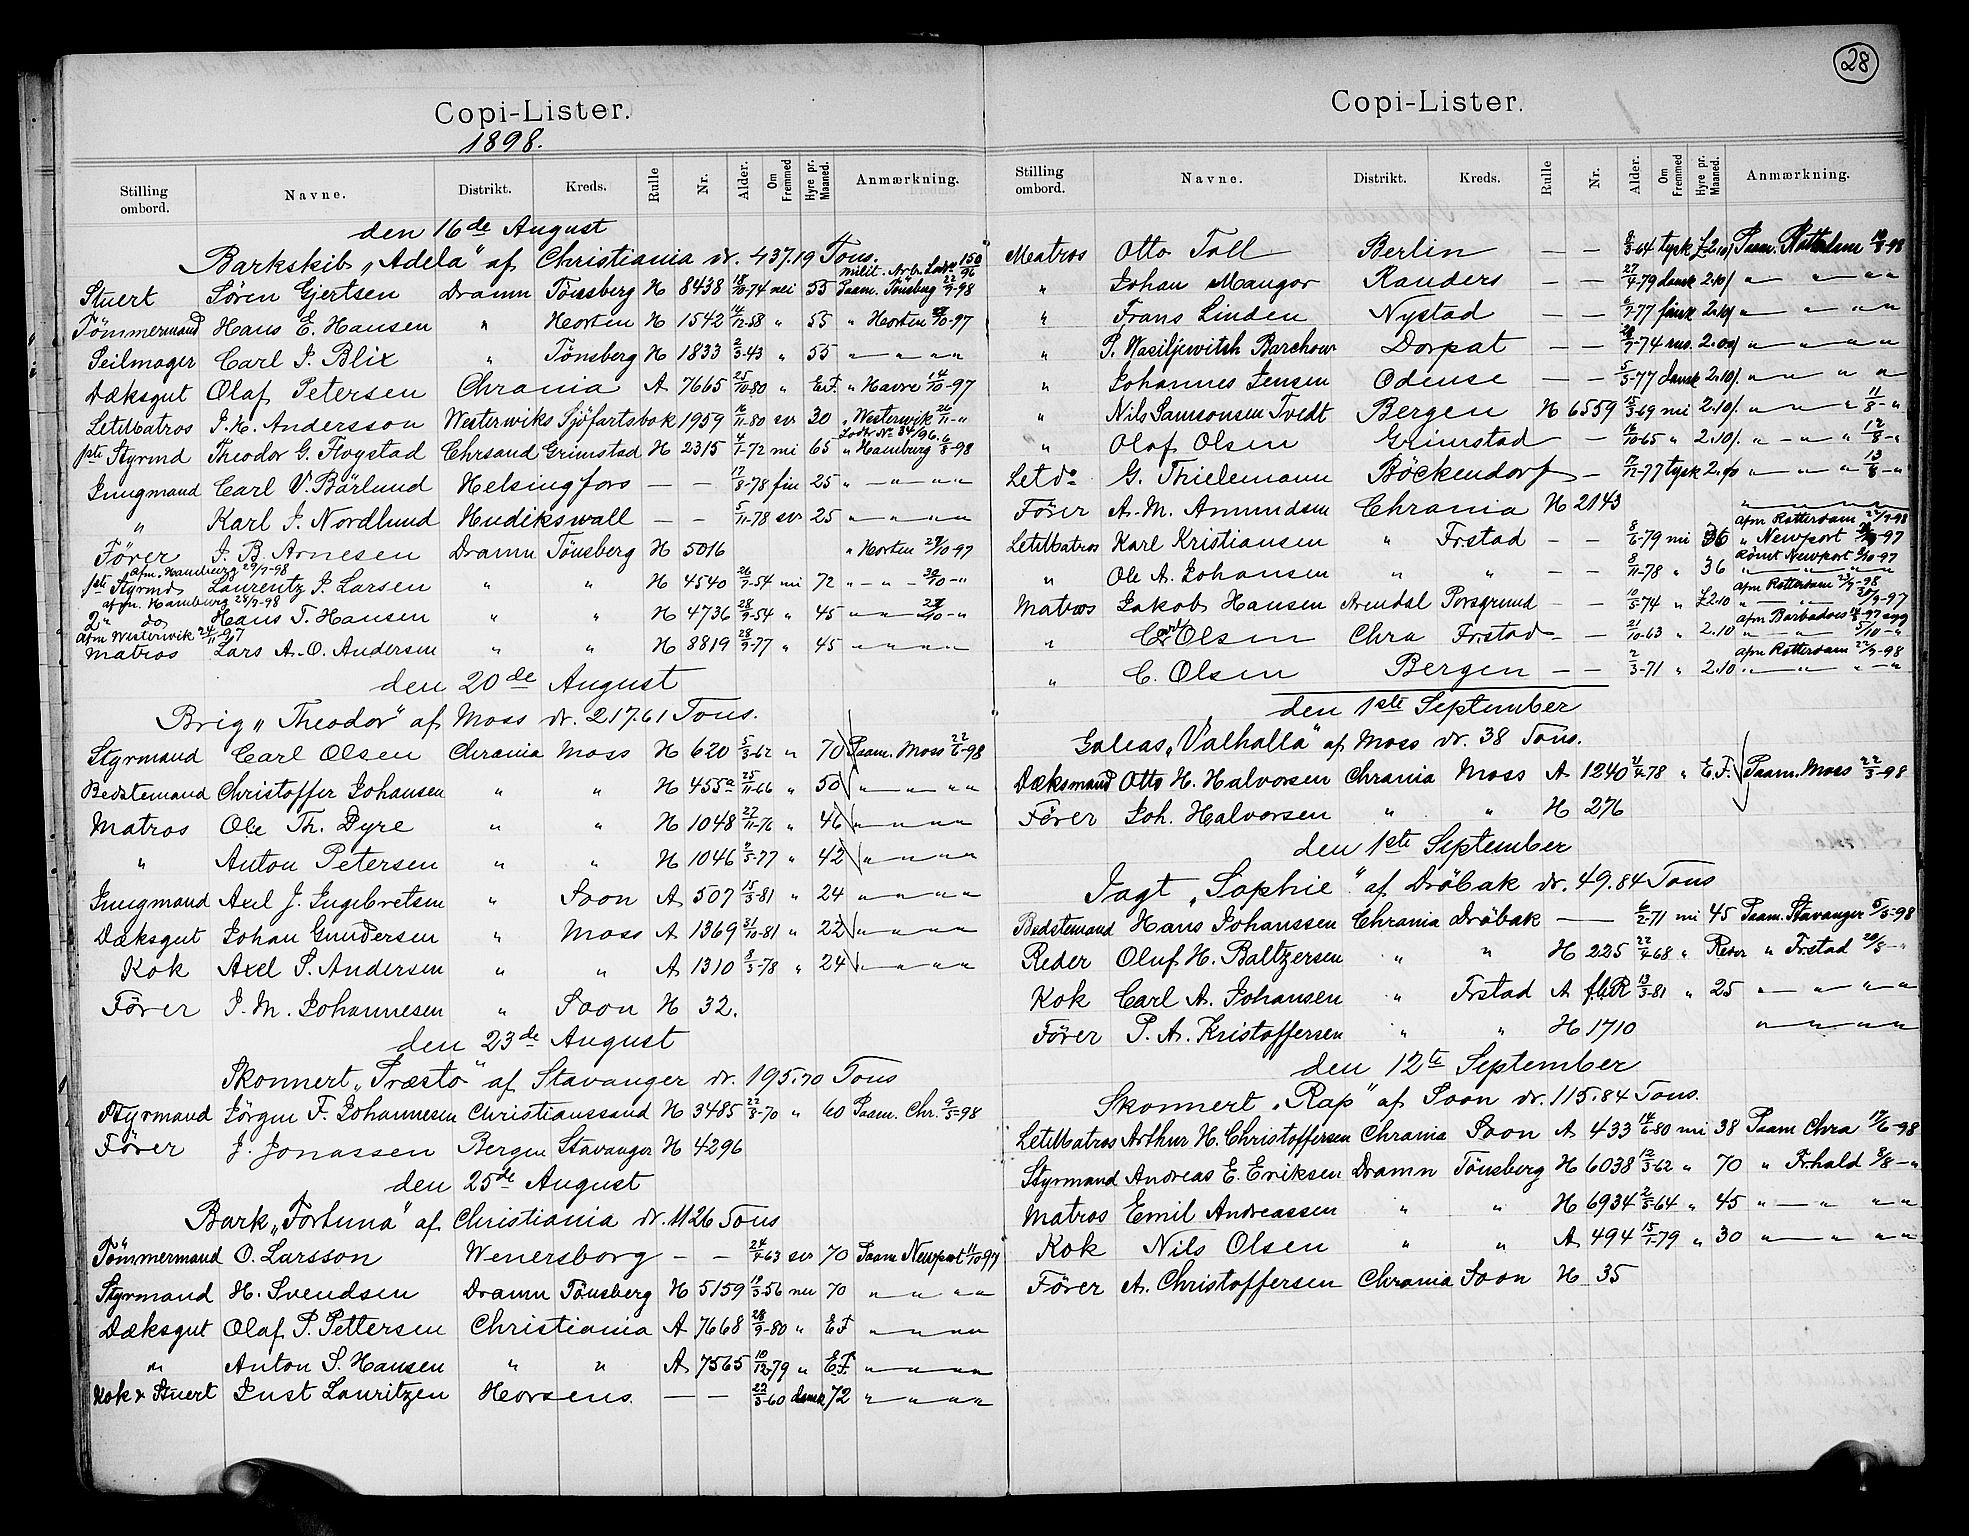 Copi-Lister.
1898.
Stilling ombord. Navne. Distrikt. Kreds. Rulle Nr. Alder. Om Fremmed Hyre pr. Maaned. Anmærkning.
den 16de August
Barkskib "Adela" af Christiania dr. 437.19 Tons.
Stuert Sören Gjertsen Dramn Tönsberg H 8438 18/10-74 nei 55 Paam. Tönsberg 22/9-98
Tömmermand Hans E. Hansen " Horten H 1542 14/12-58 " 55 " Horten 29/10-97
Seilmager Carl J. Blix " Tönsberg H 1833 2/3-43 " 55 " " " "
Dæksgut Olaf Petersen Chrania A 7665 25/10-80 " E.F. " Havre 14/10-97
LetMatros J. K. Andersson Westerwiks Sjöfartsbok 1959 16/11-80 sv 30 " Westerwik 26/11-"
Lods No 34/96.
1ste Styrmd Theodor G. Flvystad Chrsand Grimstad H 2315 4/1-72 nei 65 " Hamburg 6/8-98
Jungmand Carl V. Bärlund Helsingfors — — 17/8-78 fin 25 " " " "
" Karl J. Nordlund Hudikswall — — 5/11-78 sv 25 " " " "
Förer J. B. Arnesen Dramn Tönsberg H 5016 " Horten 29/10-97
afm. Hamburg 29/7-98
1ste Styrmd Laurentz J. Larsen " " H 4540 26/7-54 nei 72 " " - 30/10-"
afm. Hamburg 28/7-98
2" do Hans T. Hansen " " H 4736 28/9-54 " 45 " " 29/10-"
afm Westerwik 24/11-97
Matros Lars A. O. Andersen " " H 8819 28/9-77 " 45 " " " "
den 20de August
Brig "Theodor" af Moss dr. 217.61 Tons.
Styrmand Carl Olsen Chrania Moss H 620 5/3-62 " 70 Paam. Moss 22/6-98
Bedstemand Christoffer Johansen " " H 455a 25/11-66 " 50 " " " "
Matros Ole Th. Dyre " " H 1048 27/11-76 " 46 " " " "
" Anton Petersen " " H 1046 9/5-77 " 42 " " " "
Jungmand Axel J. Ingebretsen " Soon A 507 15/3-81 " 24 " " " "
Dæksgut Johan Gundersen " Moss A 1369 31/10-81 " 22 " " " "
Kok Axel S. Andersen " " A 1310 8/3-78 " 24 " " " "
Förer J. M. Johannesen " Soon H 32.
den 23de August
Skonnert "Præsto" af Stavanger dr. 195.70 Tons
Styrmand Jörgen F. Johannesen Christianssand H 3485 22/3-70 " 60 Paam. Chr. 9/5-98
Förer J. Jonassen Bergen Stavanger H 4296
den 25de August
Bark "Fortuna" af Christiania dr. 1126 Tons
Tömmermand O. Larsson Wenersborg — — 24/4-63 sv 70 Paam Newport 11/10-97
Styrmand H. Svendsen Dramn Tönsberg H 5159 19/3-56 nei 70 " " " "
Dæksgut Olaf P. Pettersen Christiania A 7668 28/9-80 " E F " " " "
" Anton S. Hansen " " A 7565 10/12-79 " E.F. " " " "
Kok & Stuert Just Lauritzen Horsens. — — 22/3-60 dansk 72 " " " "
28
Copi-Lister.
Stilling ombord. Navne. Distrikt. Kreds. Rulle Nr. Alder. Om Fremmed Hyre pr. Maaned. Anmærkning.
Matros Otto Toll Berlin — — 8/3-64 tysk £2.10/ Paam. Rotterdam 10/8-98
" Johan Mangor Randers — — 27/4-79 dansk 2.10/ " " " "
" Frans Linden Nystad — — 6/7-77 finsk 2.10/ " " " "
" P. Wasiljewitsh Barchow Dorpat — — 28/7-74 rus. 2.00/ " " " "
" Johannes Jensen Odense — — 5/3-77 dansk 2.10/. " " " "
" Nils Samsonsen Tvedt Bergen H 6559 15/3-69 nei 2.10/. " " " 11/8-"
" Olaf Olsen Grimstad — 16/10-65 " 2.10/. " " " 12/8-"
Let do G. Thielemann Böckendorf — 17/12-77 tysk 2.10 " " " 13/8-"
Förer A. M. Amundsen Chrania H 2143 " " " "
afm Rotterdam 22/7-98
LetMatros Karl Kristiansen " Frstad — — 8/6-79 nei 36 " Newport -97
römt Newport 9/10-97
" Ole A. Johansen " " — — 8/11-78 " 36 " " " "
afm Rotterdam 23/7-98
Matros Jakob Hansen Arendal Porsgrund — — 10/5-74 " £2.10 " " " 30/9-97
afm Barbadoes 14/8-97
" Carl Olsen Chra Frstad — — 21/10-63 " 2.10 " " 5/10-"
afm Rotterdam 22/7-98
" C. Olsen Bergen — — 2/3-71 " 2.10 " " " "
den 1ste September
Galeas "Valhalla" af Moss dr. 38 Tons.
Dæksmand Otto H. Halvorsen Chrania Moss A 1240 21/4-78 " E.F. Paam. Moss 22/3-98
Förer Joh. Halvorsen " " H 276
den 1ste September
Jagt "Sophie" af Dröbak dr. 49.84 Tons
Bedstemand Hans Johanssen Chrania Dröbak — — 6/2-71 nei 45 Paam. Stavanger 5/5-98
Reder Oluf H. Baltzersen " " H 225 22/4-68 " Reder " Frstad 20/8-"
Kok Carl A. Johansen " Frstad A f.b.R 13/3-81 " 25 " " " "
Förer P. A. Kristoffersen " " H 1710 " " " "
den 12te September
Skonnert "Rap" af Soon dr. 115.84 Tons.
LetMatros Arthur H. Christoffersen Chrania Soon A 433 14/6-80 nei 38 Paam Chra 17/6-98
Styrmand Andreas E. Eriksen Dramn Tönsberg H 6038 12/3-62 " 70 " Frhald 8/8-"
Matros Emil Andreassen " " H 6934 2/3-64 " 45 " " " "
Kok Nils Olsen " " A 494 15/1-79 " 30 " " " "
Förer A. Christoffersen Chrania Soon H 35